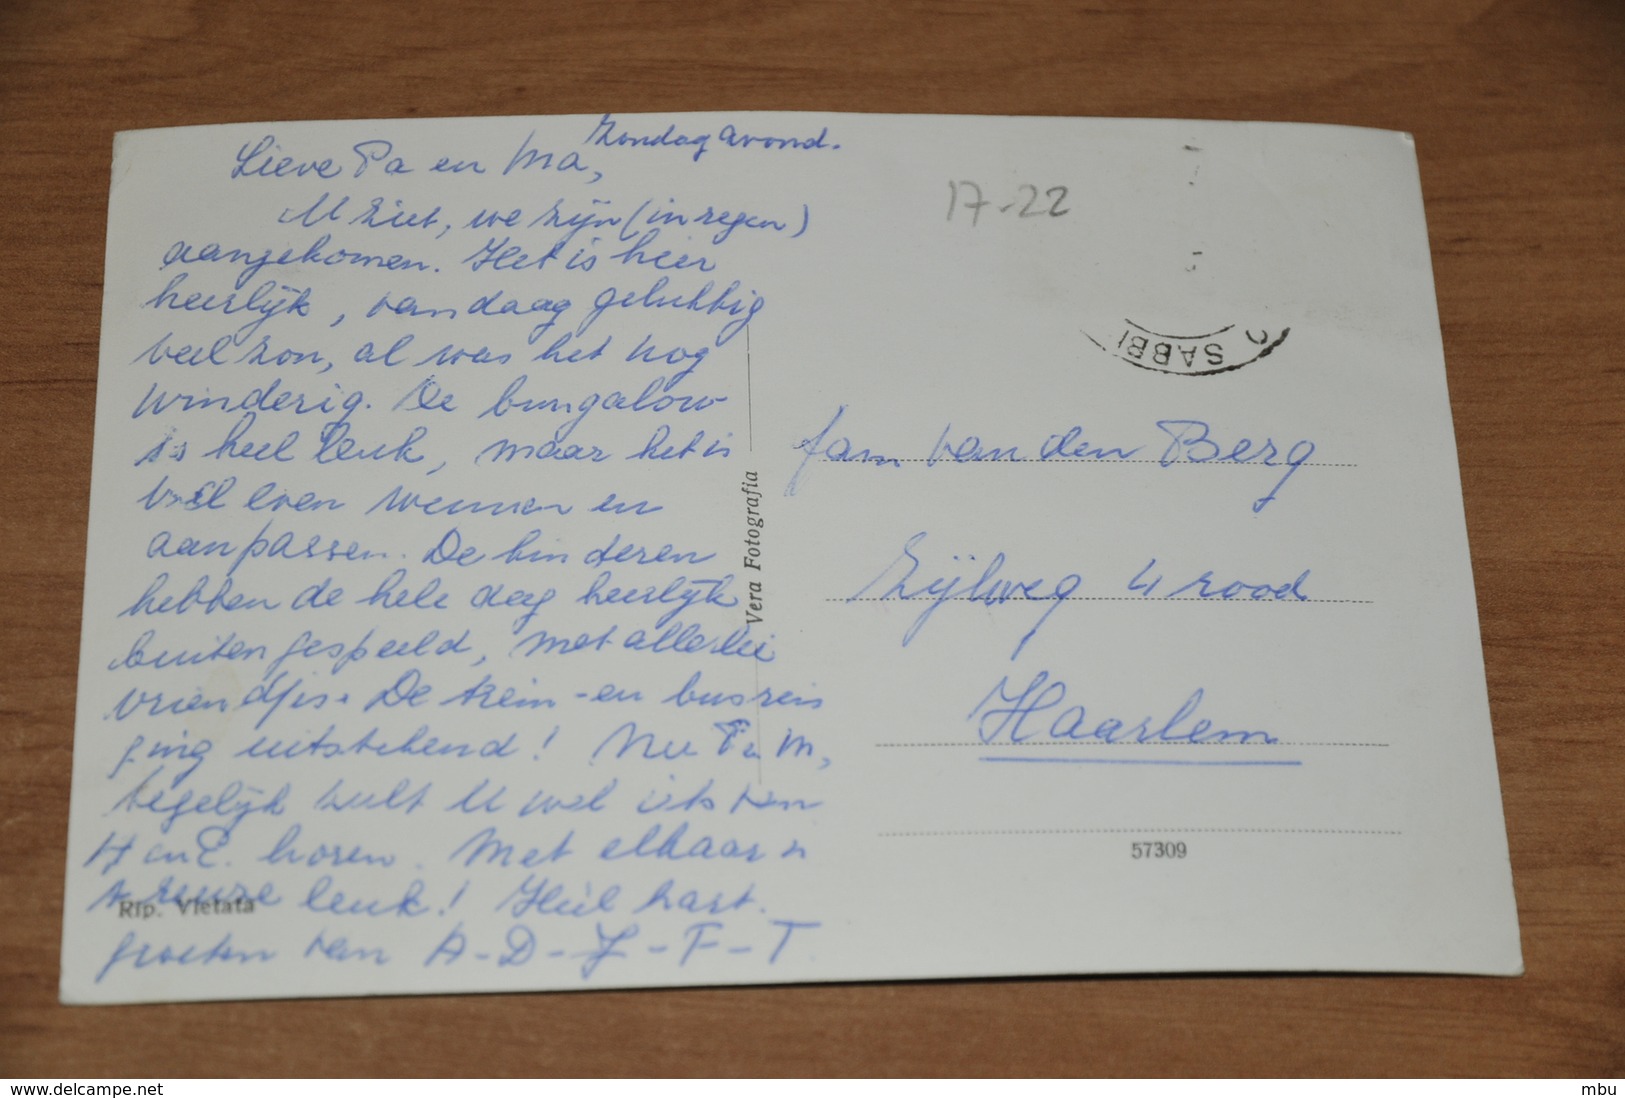 Zondag avond.
Lieve Pa en Ma,
U ziet, we zijn (in regen)
aangekomen. Het is hier
heerlijk, vandaag gelukkig
veel zon, al was het nog
winderig. De bungalow
is heel leuk, maar het is
wel even wennen en
aanpassen. De kinderen
hebben de hele dag heerlijk
buiten gespeeld, met allerlei
vriendjes. De trein - en busreis
ging uitstekend! Nu P en M,
tegelijk zult U wel iets van
H en E. horen. Met elkaar is
reuze leuk! Heel hart.
groeten van A - D - J - F - T
Rip. Vietata
Vera Fotografia
17-22
SABBI
fam van den Berg
Zijlweg 4 rood
Haarlem
57309
delcampe.net
mbu